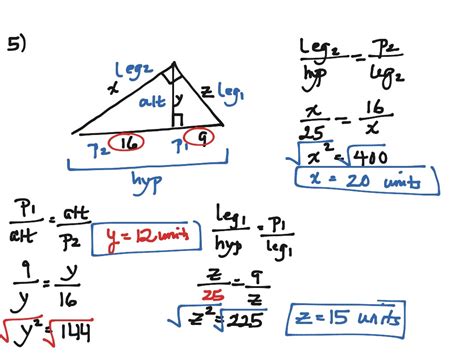 5)
leg₂
x
alt
y
z leg₁
p₂ 16
p₁ 9
hyp
leg₂/hyp = p₂/leg₂
x/25 = 16/x
√x² = √400
x = 20 units
p₁/alt = alt/p₂
y = 12 units
9/y = y/16
√y² = √144
leg₁/hyp = p₁/leg₁
z/25 = 9/z
√z² = √225
z = 15 units